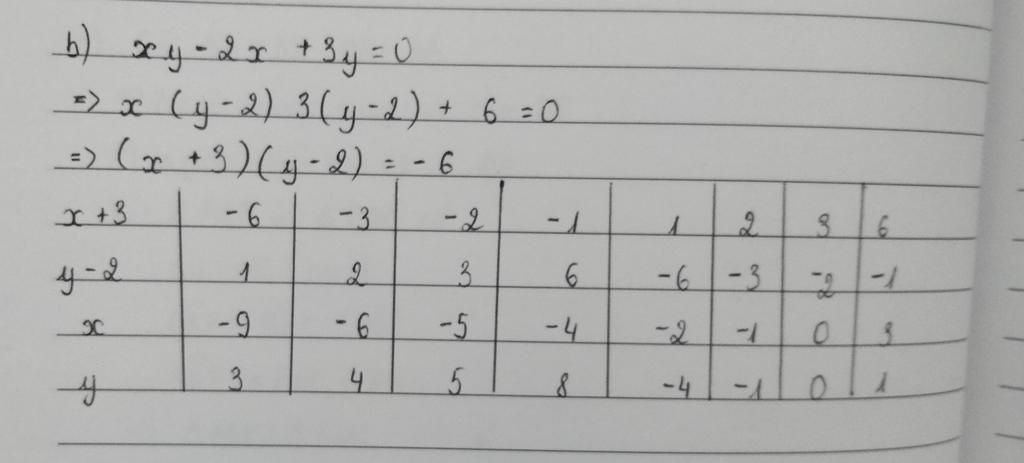 b) xy - 2x + 3y = 0
=> x (y - 2) 3(y - 2) + 6 = 0
=> (x + 3)(y - 2) = - 6
x + 3 | -6 | -3 | -2 | -1 | 1 | 2 | 3 | 6
y - 2 | 1 | 2 | 3 | 6 | -6 | -3 | -2 | -1
x | -9 | -6 | -5 | -4 | -2 | -1 | 0 | 3
y | 3 | 4 | 5 | 8 | -4 | -1 | 0 | 1